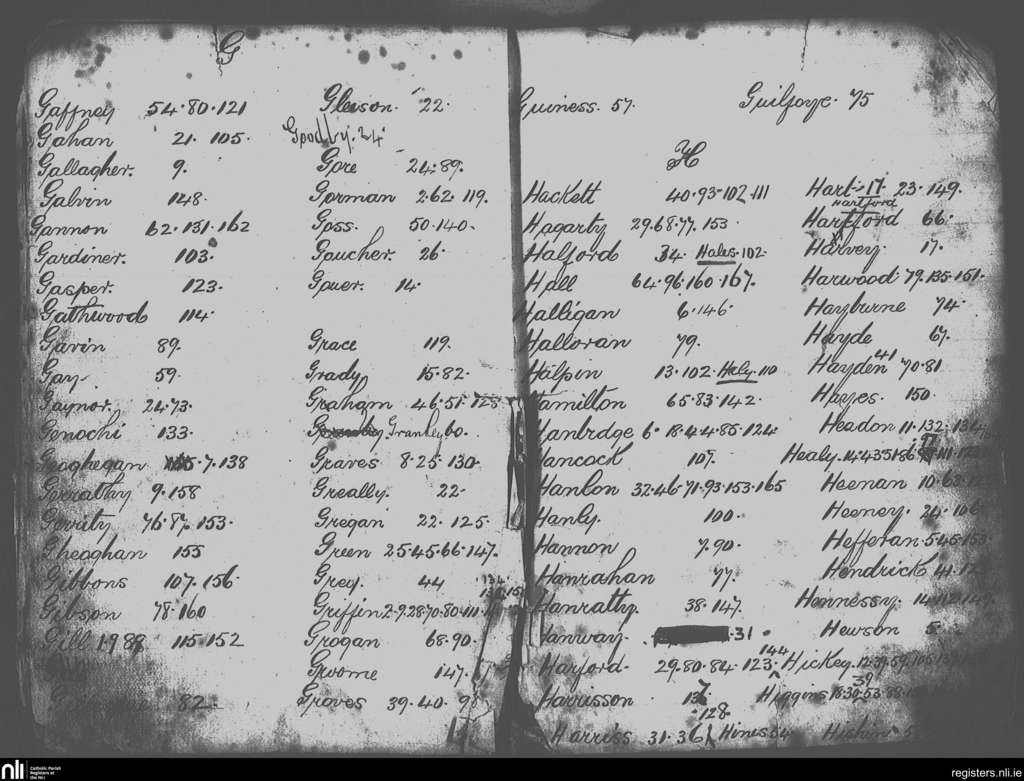 G
Gaffney 54.80.121
Gahan 21. 105.
Gallagher. 9.
Galvin 148.
Gannon 62.131.162
Gardiner. 103.
Gasper. 123.
Gathwood 114.
Gavin 89.
Gay 59.
Gaynor. 24.73.
Genochi 133.
Geoghegan 7.138
Gerrathy 9.158
Gerrity 76.87. 153.
Gheoghan 155
Gibbons 107.156.
Gibson 78.160
Gill 115.152
82.
Gleeson. 22.
Goodby. 24
Gore 24.89.
Gorman 2.62.119.
Goss. 50.140.
Goucher. 26
Gouer. 14.
Grace 119.
Grady 15.82.
Graham 46.51.128
Grankey 60.
Graves 8.25.130.
Greally. 22.
Gregan 22. 125.
Green 25.45.66.147.
Grey. 44
Griffin 2.9.28.70.80.111.
Grogan 68.90.
Groome 147.
Groves 39.40.
Guiness. 57.
Guilfoye. 75
H
Hackett 40.93.102.111
Hagarty 29.68.77.153
Halford 34. Hales.102.
Hall 64.96.160.167.
Halligan 6.146.
Halloran 79.
Halpin 13.102. Haly. 110
Hamilton 65.83.142.
Hanbrdge 6.18.44.85.124.
Hancock 107.
Hanlon 32.46.71.93.153.165
Hanly. 100.
Hannon 7.90.
Hanrahan 77.
Hanratty. 38.147.
Hanway. 31.
Harford 29.80.84.123. 144
Harisson 137.
128.
Harriss 31.36 Hines 54
Hart. 17. 23.149.
Hartford
Hartford 66.
Harvey. 17.
Harwood 79.135.151.
Hayburne 74.
Hayde 67.
Hayden 41 70.81
Hayes. 150.
Headon 11.132.134
Healy.
Heenan 10.68.
Heeney. 24.106
Hefferan 5.45.153
Hendrick 41.
Hennessy. 14.112.149
Hewson 5.
Hickey.
Higgins 39
Hishin
nli Catholic Parish
Registers at
the NLI
registers.nli.ie